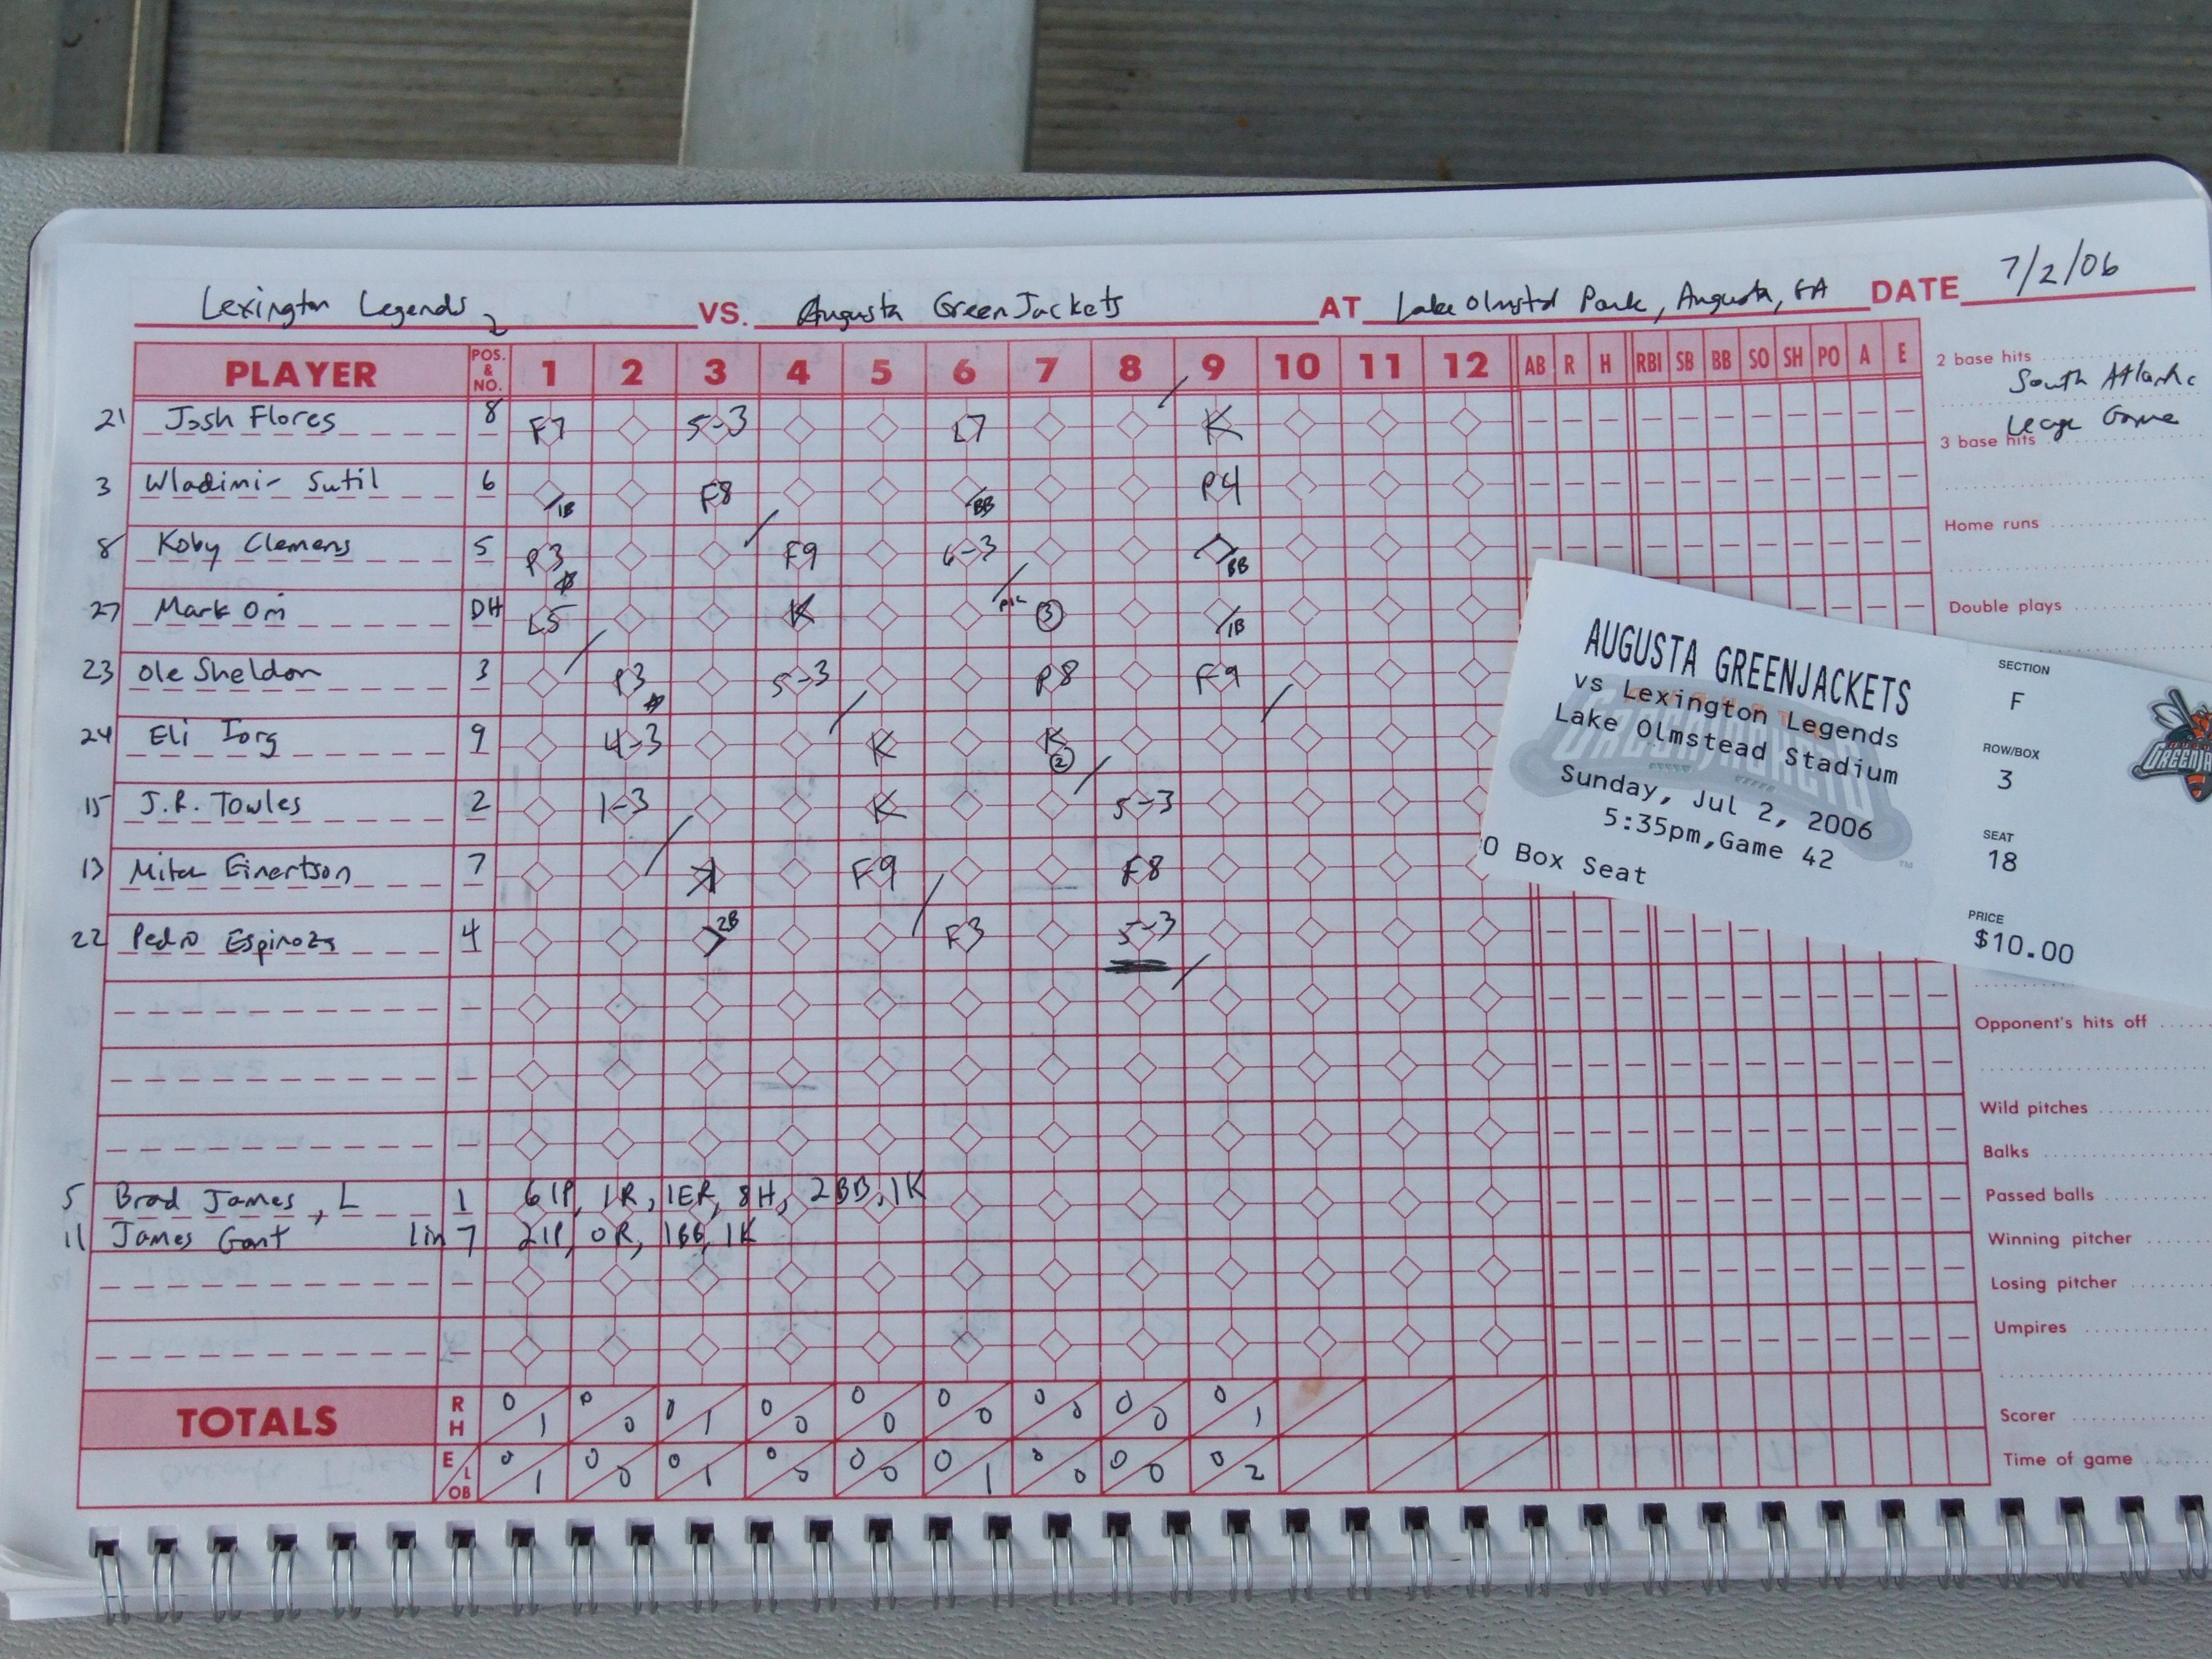 Lexington Legends VS. Augusta GreenJackets AT Lake Olmstd Park, Augusta, GA DATE 7/2/06
PLAYER POS. & NO. 1 2 3 4 5 6 7 8 9 10 11 12 AB R H RBI SB BB SO SH PO A E
2 base hits
South Atlantic
21 Josh Flores 8 F7 5-3 L7 K
3 base hits
3 Wladimir Sutil 6 1B F8 BB P4
8 Koby Clemens 5 P3 F9 6-3 BB
Home runs
27 Mark Ori DH L5 K 3 1B
Double plays
23 Ole Sheldon 3 P3 5-3 P8 F9
24 Eli Iorg 9 4-3 K K 2
15 J.R. Towles 2 1-3 K 5-3
13 Mitch Einertson 7 K F9 F8
22 Pedro Espinoza 4 2B F3 5-3
AUGUSTA GREENJACKETS
vs Lexington Legends
Lake Olmstead Stadium
Sunday, Jul 2, 2006
5:35pm, Game 42
0 Box Seat
SECTION
F
ROW/BOX
3
SEAT
18
PRICE
$10.00
Opponent's hits off
Wild pitches
Balks
5 Brad James, L 1 6 IP, 1R, 1ER, 8H, 2BB, 1K
Passed balls
11 James Gant 1 in 7 2IP, 0R, 1BB, 1K
Winning pitcher
Losing pitcher
Umpires
TOTALS R H 0 1 0 0 0 1 0 0 0 0 0 0 0 0 0 0 0 1
Scorer
E LOB 0 1 0 0 0 1 0 0 0 0 0 1 0 0 0 0 0 2
Time of game